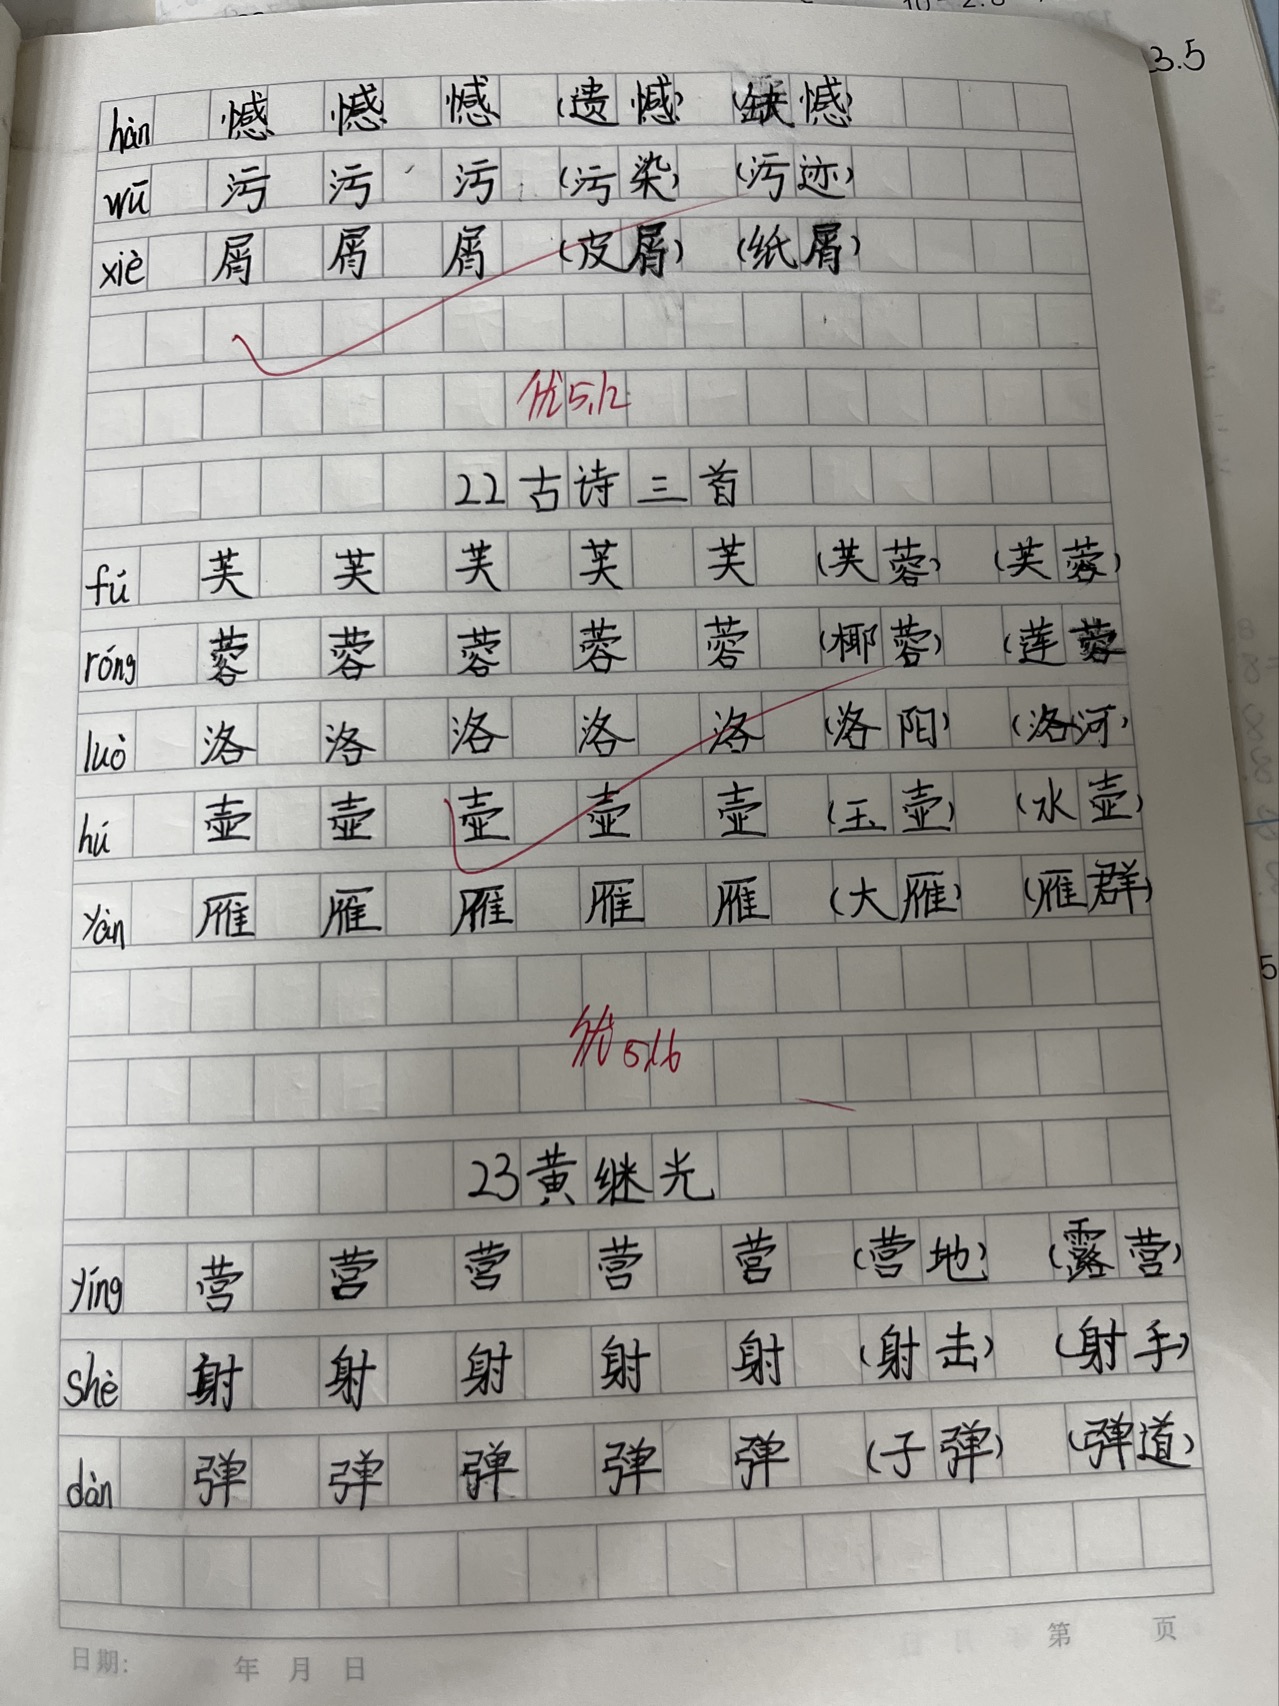 3.5
hàn 憾 憾 憾 (遗憾) (缺憾)
wū 污 污 污 (污染) (污迹)
xiè 屑 屑 屑 (皮屑) (纸屑)
优 5.12
22 古诗三首
fú 芙 芙 芙 芙 芙 (芙蓉) (芙蓉)
róng 蓉 蓉 蓉 蓉 蓉 (椰蓉) (莲蓉
luò 洛 洛 洛 洛 洛 (洛阳) (洛河)
hú 壶 壶 壶 壶 壶 (玉壶) (水壶)
yàn 雁 雁 雁 雁 雁 (大雁) (雁群)
优 5.16
23 黄继光
yíng 营 营 营 营 营 (营地) (露营)
shè 射 射 射 射 射 (射击) (射手)
dàn 弹 弹 弹 弹 弹 (子弹) (弹道)
日期: 年 月 日 第 页